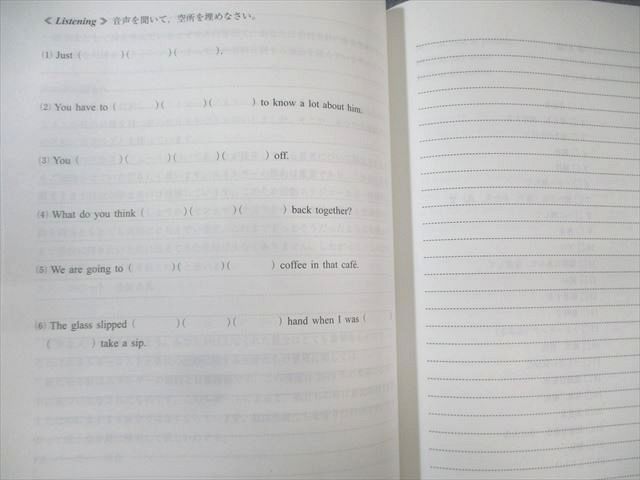 ≪ Listening ≫ 音声を聞いて，空所を埋めなさい。
(1) Just (　　)(　　)(　　).
(2) You have to (　　)(　　)(　　) to know a lot about him.
(3) You (　　)(　　)(　　)(　　) off.
(4) What do you think (　　)(　　)(　　) back together?
(5) We are going to (　　)(　　)(　　) coffee in that café.
(6) The glass slipped (　　)(　　)(　　) hand when I was (　　)
(　　) take a sip.